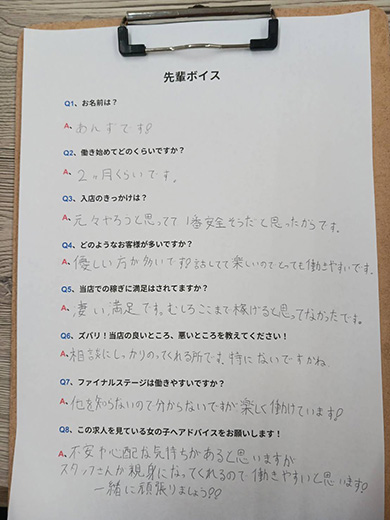 先輩ボイス
Q1、お名前は？
A、あんずです!
Q2、働き始めてどのくらいですか？
A、2ヶ月くらいです。
Q3、入店のきっかけは？
A、元々やろうと思ってて1番安全そうだと思ったからです。
Q4、どのようなお客様が多いですか？
A、優しい方が多いです!話してて楽しいのでとっても働きやすいです。
Q5、当店での稼ぎに満足はされてますか？
A、凄い、満足です。むしろここまで稼げると思ってなかったです。
Q6、ズバリ！当店の良いところ、悪いところを教えてください！
A、相談にしっかりのってくれる所です。特にないですかね
Q7、ファイナルステージは働きやすいですか？
A、他を知らないので分からないですが楽しく働けています!
Q8、この求人を見ている女の子へアドバイスをお願いします！
A、不安や心配な気持ちがあると思いますが
スタッフさんが親身になってくれるので働きやすいと思います!
一緒に頑張りましょう!!